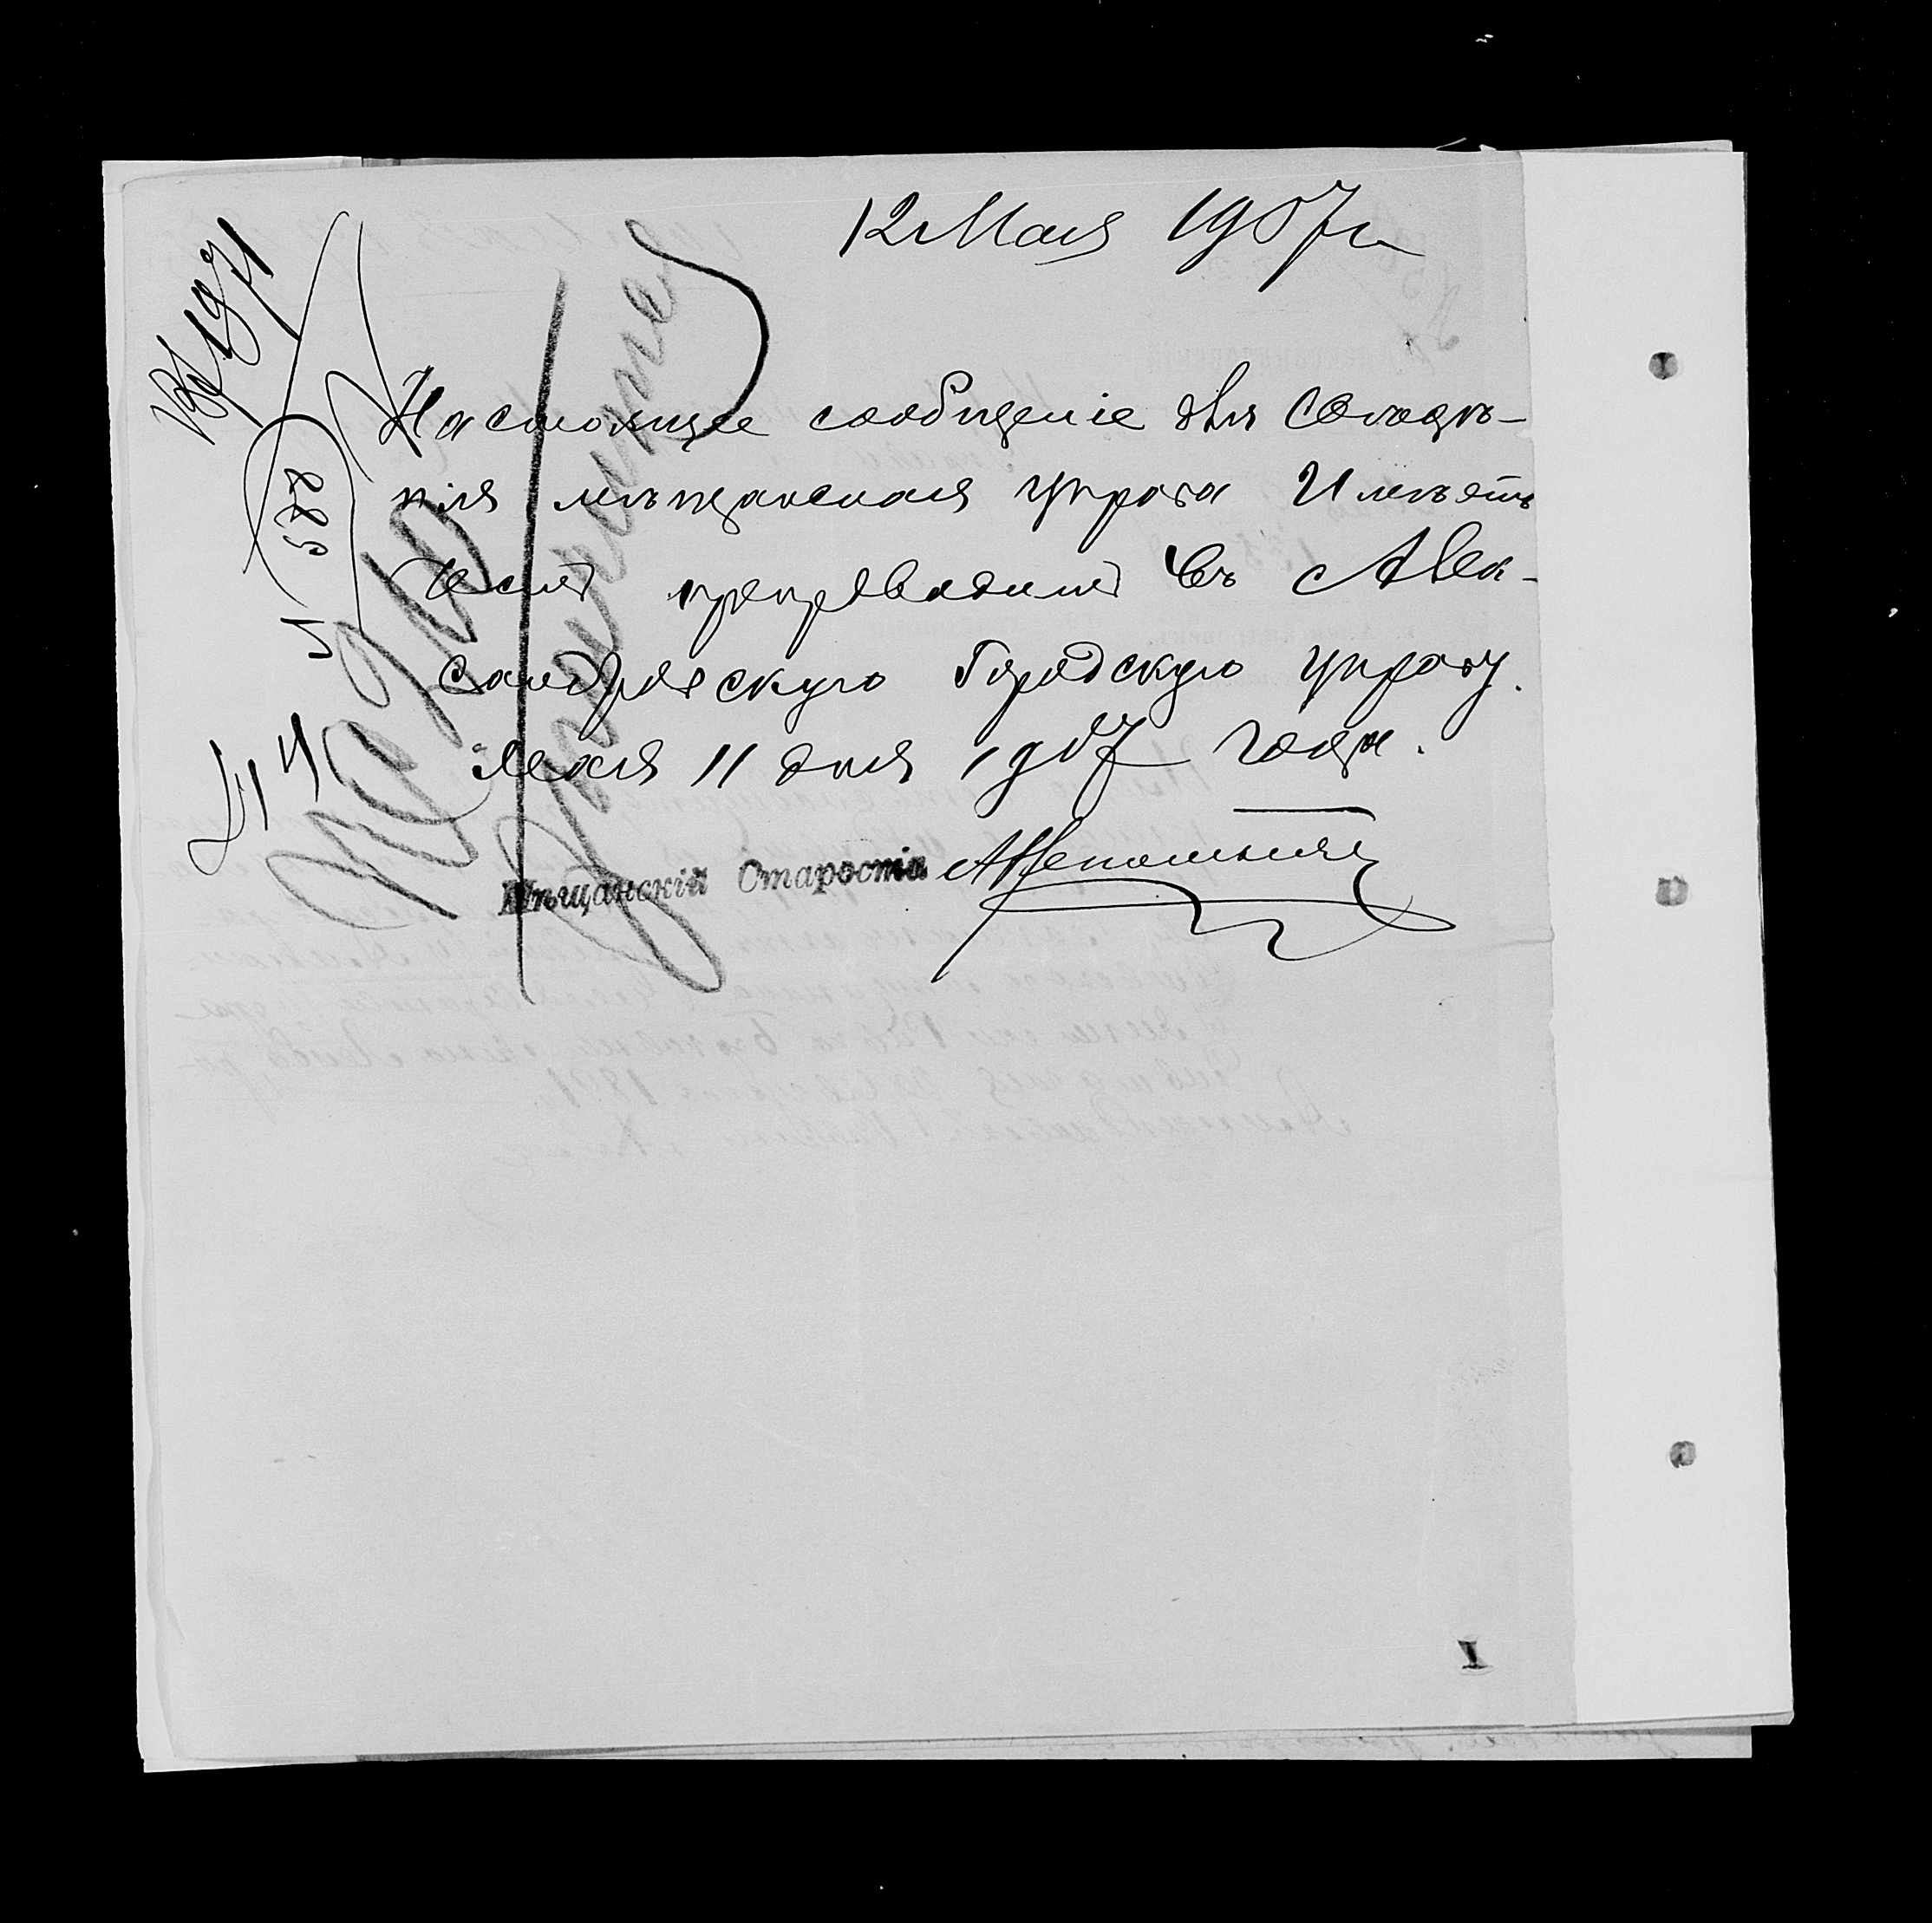 12 Мая 1907 г
Вх 1971
Настоящее сообщеніе для
нія мѣщанская управа Имѣетъ
честь препроводить въ Алек-
сандровскую Городскую управу.
Мая 11 дня 1907 года.
Мѣщанскій Староста
588